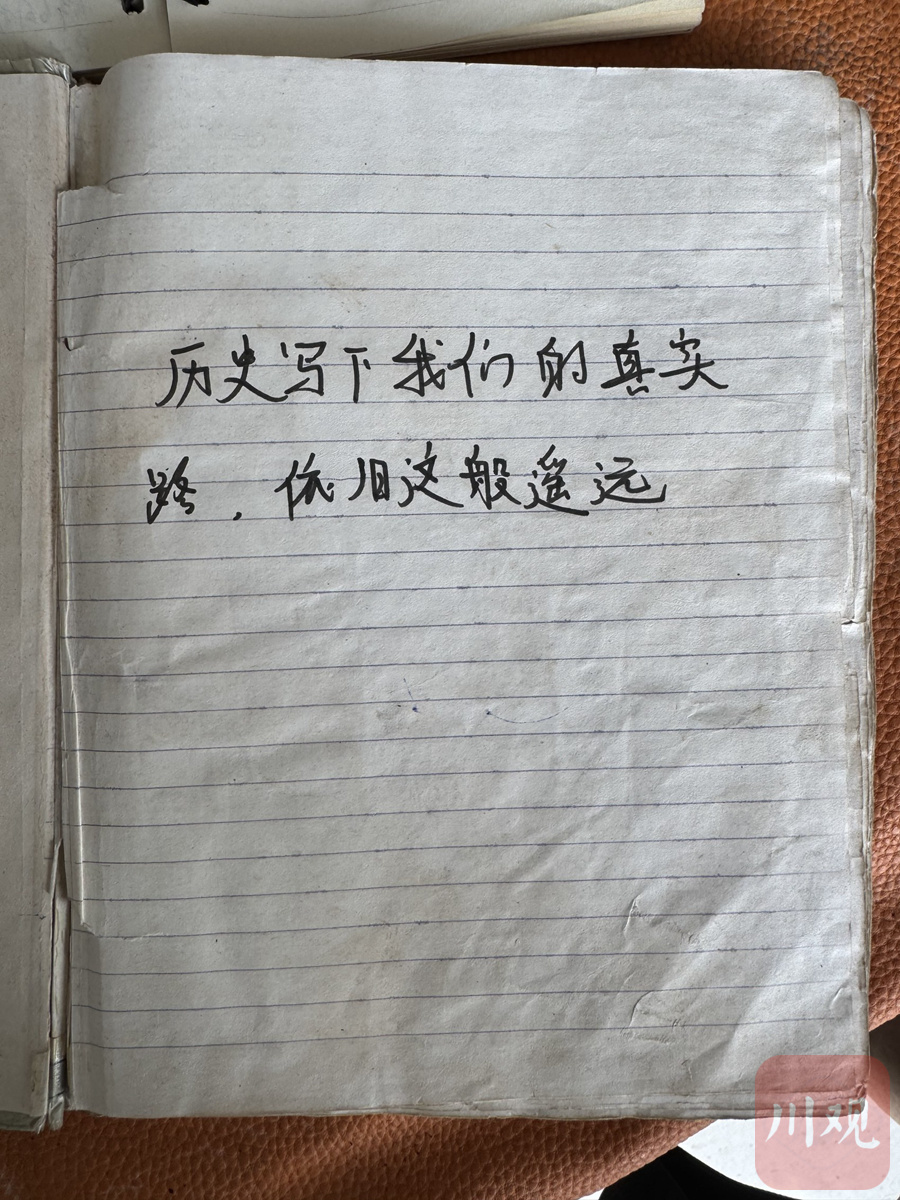 历史写下我们的真实
路，依旧这般遥远
川观